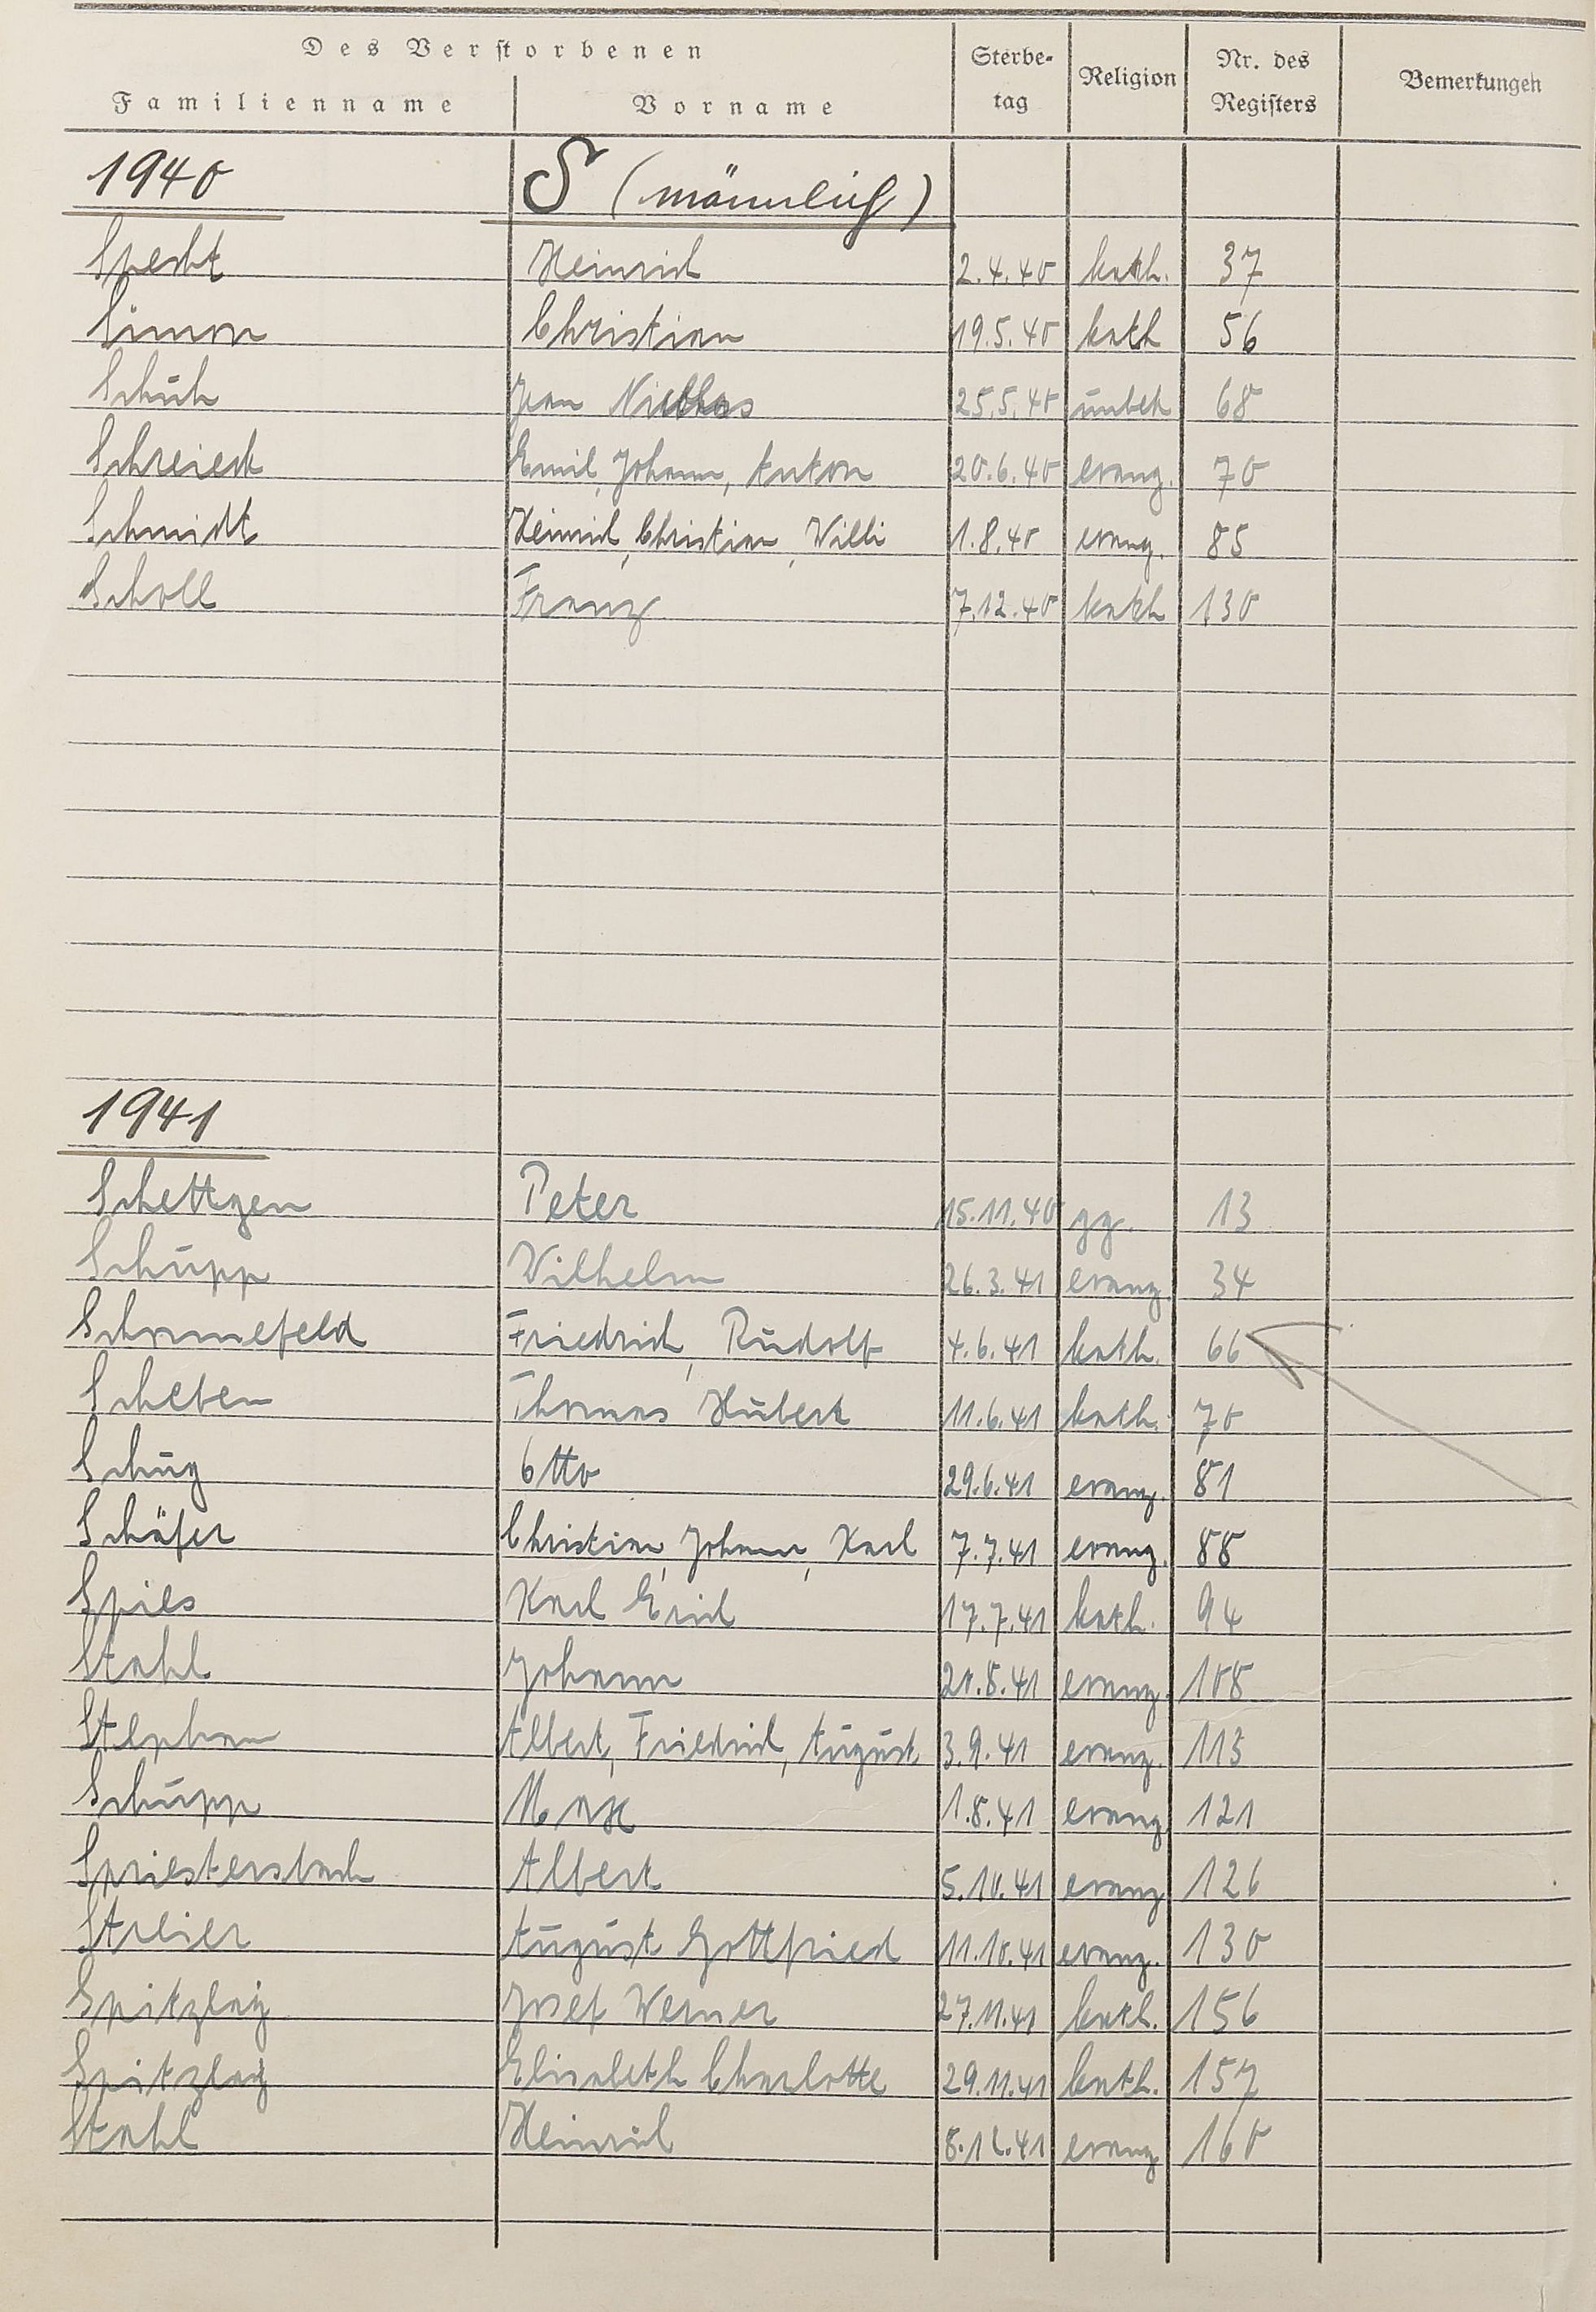 Des Verstorbenen
Familienname Vorname Sterbetag Religion Nr. des Registers Bemerkungen
1940 S (männlich)
Specht Heinrich 2.4.40 kath. 37
Simon Christian 19.5.40 kath 56
Schuh Jean 25.5.40 unbek 68
Schreieck Emil, Johann, Anton 20.6.40 evang. 70
Schmidt Heinrich, Christian, Willi 1.8.40 evang. 85
Scholl Franz 7.12.40 kath 130
1941
Schettgen Peter 15.11.40 gg. 13
Schupp Wilhelm 26.3.41 evang. 34
Schönefeld Friedrich, Rudolf 4.6.41 kath. 66
Scheben Thomas Hubert 11.6.41 kath. 70
Schug Otto 29.6.41 evang. 81
Schäfer Christian, Johann, Karl 7.7.41 evang. 88
Spies Karl Erich 17.7.41 kath. 94
Stahl Johann 20.8.41 evang. 108
Stephan Albert, Friedrich, August 3.9.41 evang. 113
Schupp Max 1.8.41 evang 121
Spriestersbach Albert 5.10.41 evang 126
Streier August Gottfried 11.10.41 evang. 130
Spitzlay Josef Werner 27.11.41 kath. 156
Spitzlay Elisabeth Charlotte 29.11.41 kath. 157
Stahl Heinrich 8.12.41 evang 160